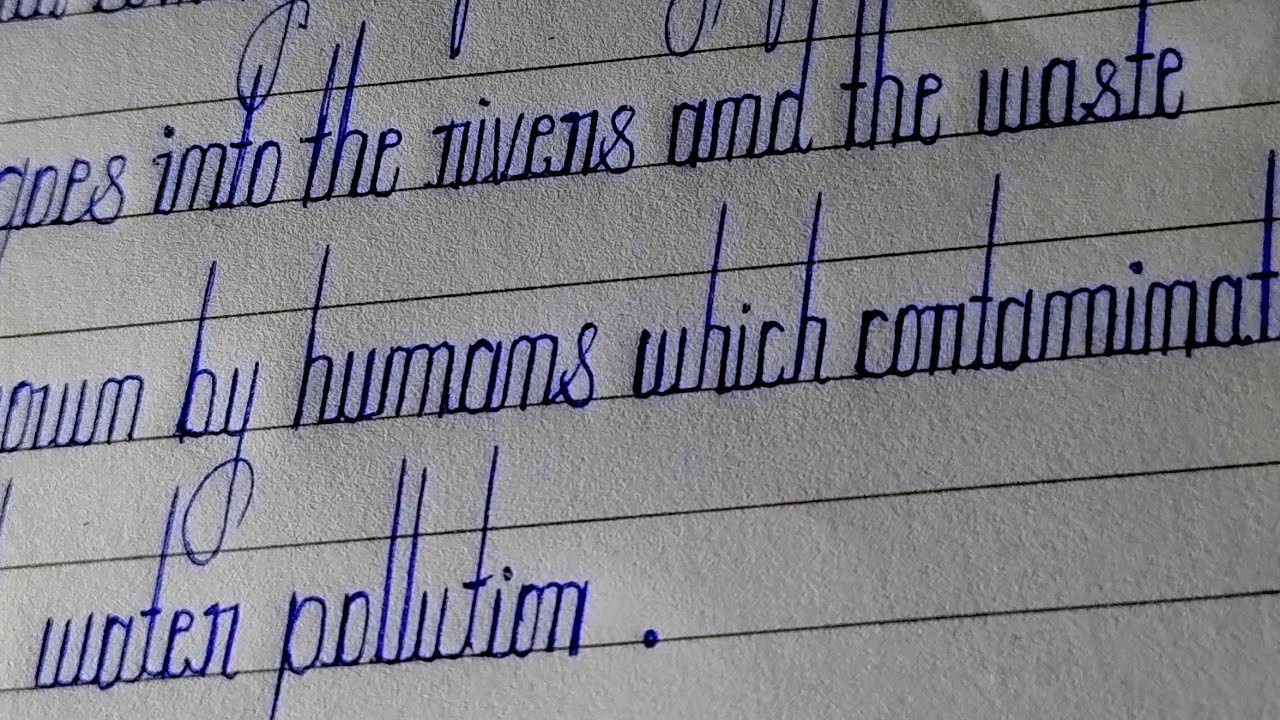 goes into the rivers and the waste
own by humans which contaminat
water pollution .